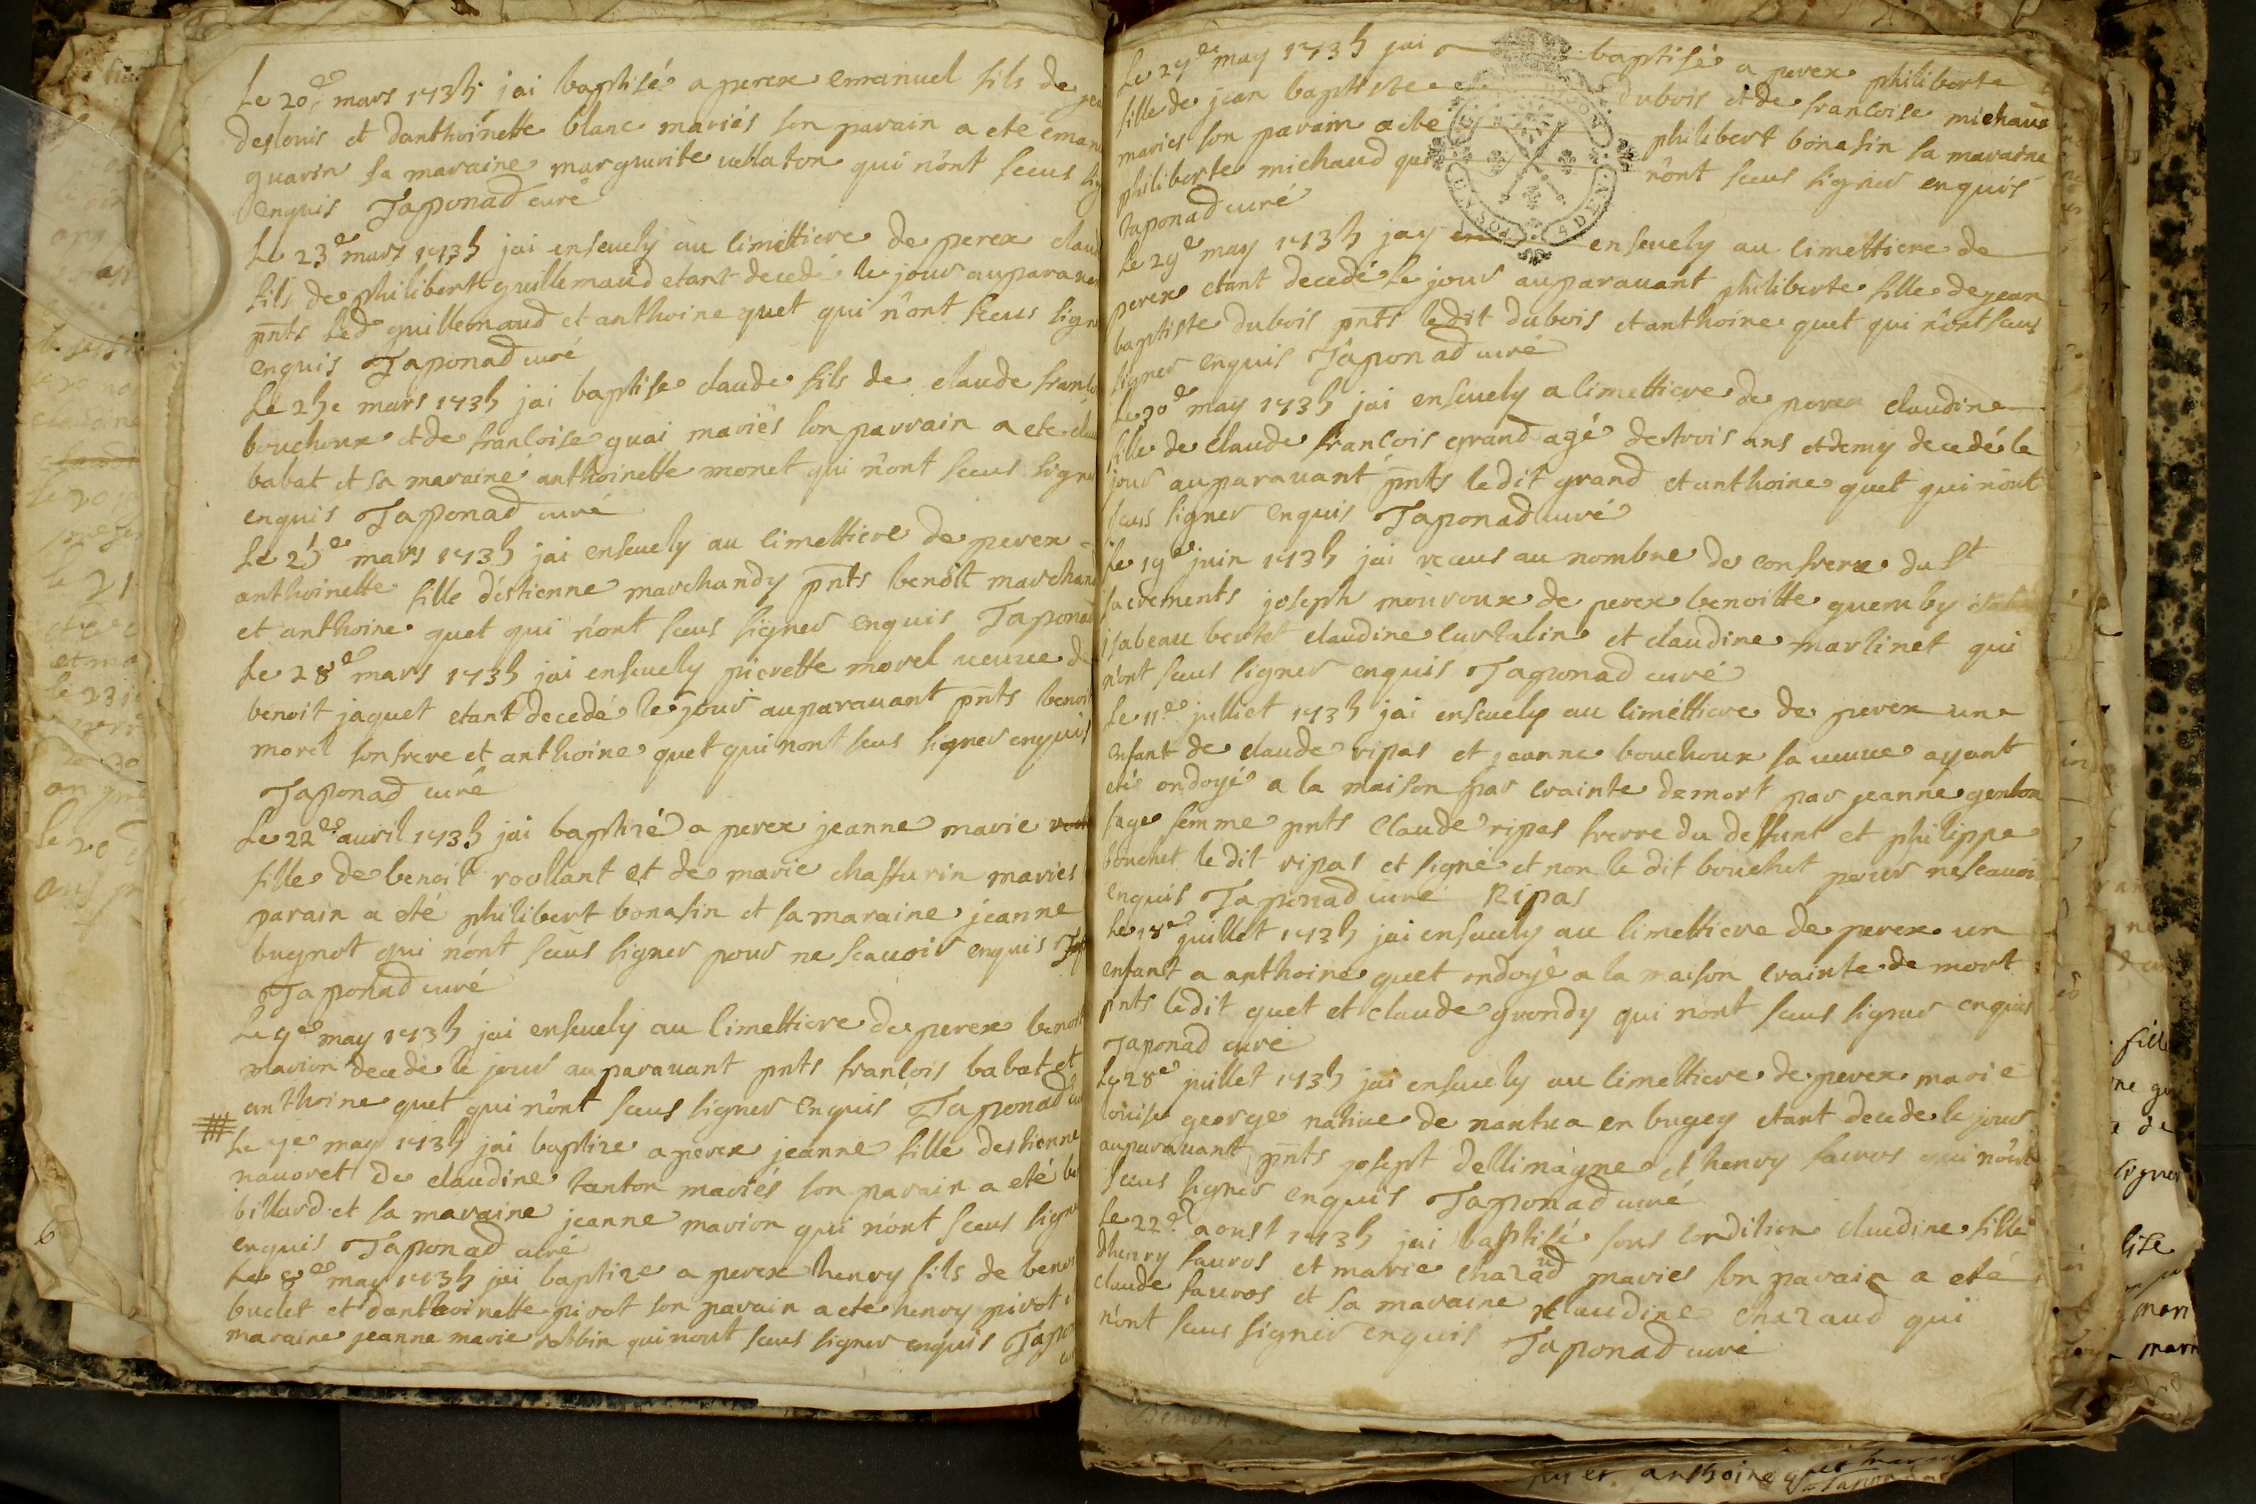 Le 20e mars 1735 jai baptisé a perex emanuel fils de
deslouis et danthoinette blanc mariés son parain a eté eman
guarin sa maraine marguerite vellaton qui n'ont sceus sig
enquis Taponad curé
Le 23e mars 1735 jai ensevely au cimettiere de perex clau
fils de philibert guillemaud etant decedé le jour auparavan
pnts led guillemaud et anthoine quet qui n'ont sceus signe
enquis Taponad curé
Le 25e mars 1735 jai baptise claude fils de claude franco
bouchoux et de francoise guai mariés son parrain a ete clau
babat et sa maraine anthoinette monet qui n'ont sceus signe
enquis Taponad curé
Le 25e mars 1735 jai ensevely au cimettiere de perex
anthoinette fille d'estienne marchandy pnts benoit marchan
et anthoine quet qui n'ont sceus signer enquis Tapona
Le 28e mars 1735 jai ensevely pierrette morel veuve d
benoit jaquet etant decedé le jour auparavant pnts benoit
morel son frere et anthoine quet qui nont sceus signer enquis
Taponad curé
Le 22e avril 1735 jai baptizé a perex jeanne marie
fille de benoit rollant et de marie chassurin mariés
parain a eté philibert bonasin et sa maraine jeanne
bugnot qui n'ont sceus signer pour ne scavoir enquis
Taponad curé
Le 4e may 1735 jai ensevely au cimettiere de perex benoit
marion decedé le jour auparavant pnts francois babat et
anthoine quet qui n'ont sceus signer enquis Taponad cu
Le 7e may 1735 jai baptize a perex jeanne fille destienne
navoret de claudine tanton mariés son parain a eté be
billard et sa maraine jeanne marion qui n'ont sceus signe
enquis Taponad curé
Le 8e may 1735 jai baptize a perex henry fils de beno
buclet et danthoinette pirot son parain a ete henry pirot
maraine jeanne marie robbin qui nont sceus signer enquis Tapon
6
Le 29e may 1735 jai baptisé a perex philiberte
fille de jean baptiste dubois et de francoise michaud
mariés son parain a eté philibert bonasin sa maraine
philiberte michaud qui n'ont sceus signer enquis
Taponad curé
Le 29e may 1735 jay ensevely au cimettiere de
perex etant decedé le jour auparavant philiberte fille de jean
baptiste dubois pnts ledit dubois et anthoine quet qui n'ont sceus
signer enquis Taponad curé
Le 30e may 1735 jai ensevely a cimettiere de perex claudine
fille de claude francois grand agé de trois ans et demy decedé le
jour auparavant pnts ledit grand et anthoine quet qui n'ont
sceus signer enquis Taponad curé
Le 19e juin 1735 jai receus au nombre de confrere du St
sacrements joseph mouroux de perex benoitte guemby
isabeau bertet claudine curtalin et claudine martinet qui
n'ont sceus signer enquis Taponad curé
Le 11e juillet 1735 jai ensevely au cimettiere de perex une
enfant de claude ripas et jeanne bouchoux sa veuve ayant
eté ondoyé a la maison par crainte de mort par jeanne genton
sage femme pnts claude ripas frerre du deffunt et philippe
bouchet le dit ripas et signé et non le dit bouchet pour ne scavoir
enquis Taponad curé Ripas
Le 18e juillet 1735 jai ensevely au cimettiere de perex un
enfant a anthoine quet ondoyé a la maison crainte de mort
pnts ledit quet et claude grondy qui n'ont sceus signer enquis
Taponad curé
Le 28e juillet 1735 jai ensevely au cimettiere de perex marie
louise george native de nantua en bugey etant decedé le jour
auparavant pnts josept dellimagne et henry sauros qui n'ont
sceus signer enquis Taponad curé
Le 22e aoust 1735 jai baptisé sous condition claudine fille
dhenry sauros et marie chazaud mariés son parain a eté
claude sauros et sa maraine claudine chazaud qui
n'ont sceus signer enquis Taponad curé